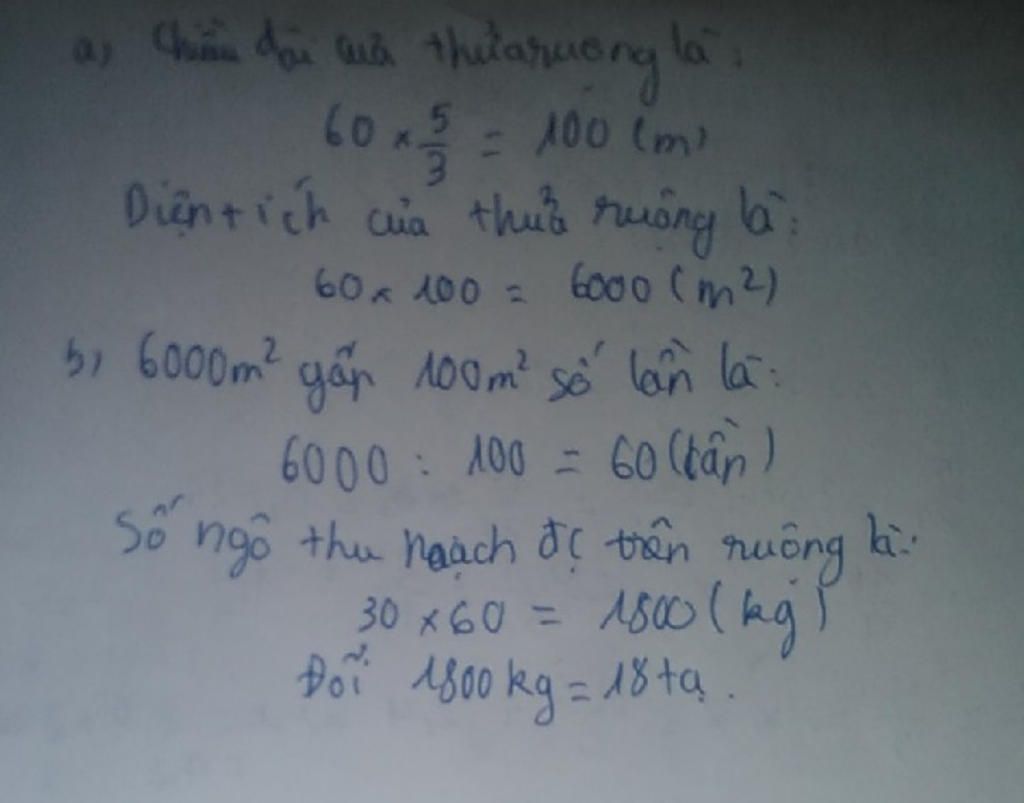 a, Chiều dài của thửa ruộng là:
60 × 5/3 = 100 (m)
Diện tích của thửa ruộng là:
60 × 100 = 6000 (m²)
b, 6000m² gấp 100m² số lần là:
6000 : 100 = 60 (lần)
Số ngô thu hoạch đc trên ruộng là:
30 × 60 = 1800 (kg)
Đổi 1800 kg = 18 tạ.